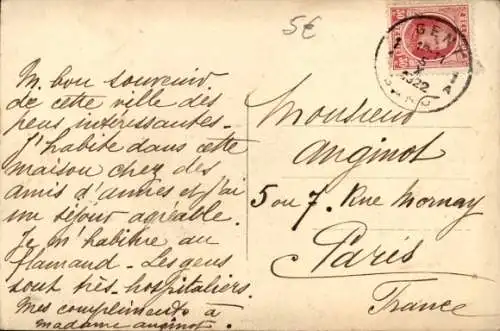 5€
GENT
1922
GAND
M. bon souvenir
de cette ville des
plus intéressantes -
J'habite dans cette
maison chez des
amis d'années et j'ai
un séjour agréable.
Je m'habitue au
flamand - Les gens
sont très-hospitaliers.
Mes compliments à
madame anginot.
Monsieur
Anginot
5 ou 7. Rue Mornay
Paris
France